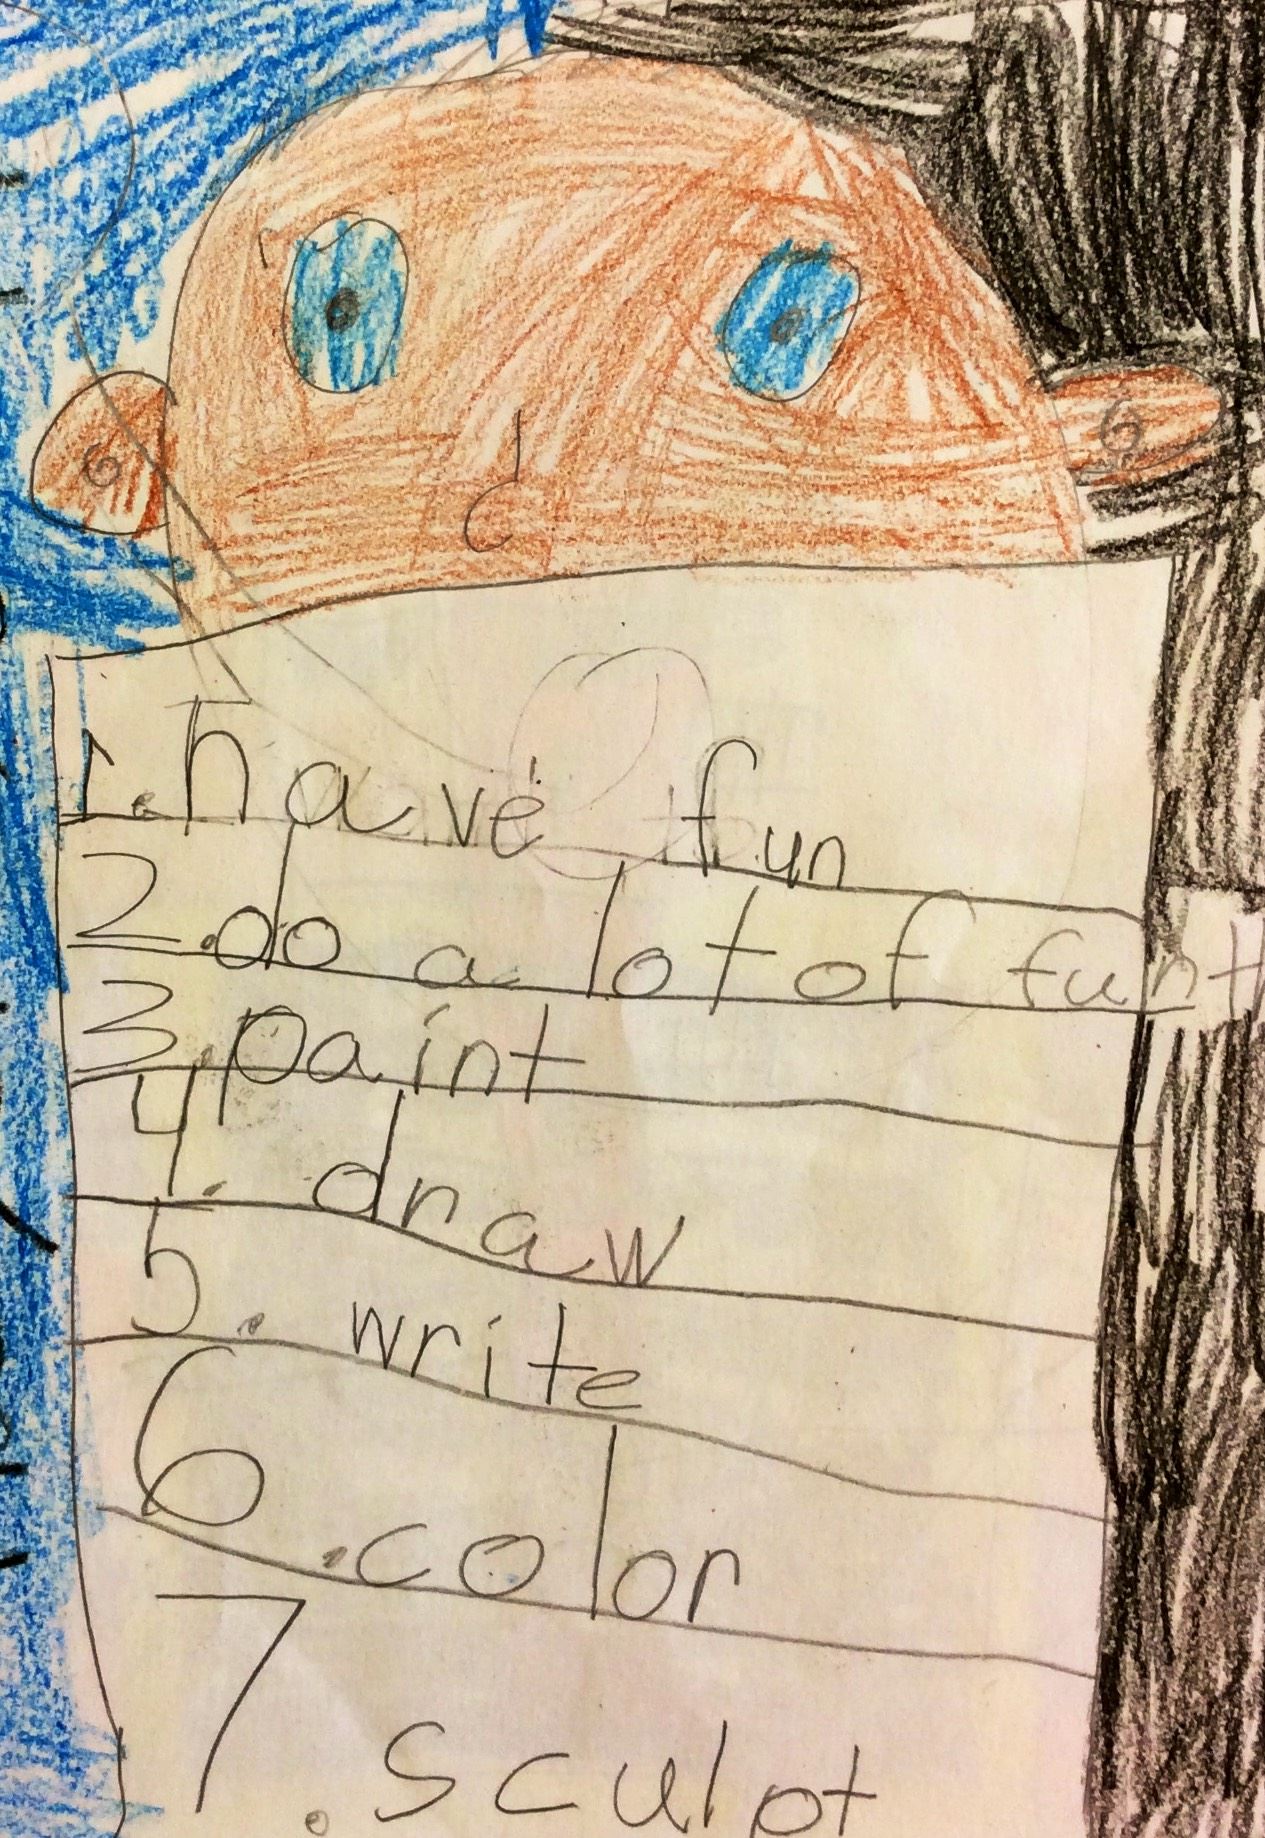 1. have fun
2. do a lot of fun
3. paint
4. draw
5. write
6. color
7. sculpt